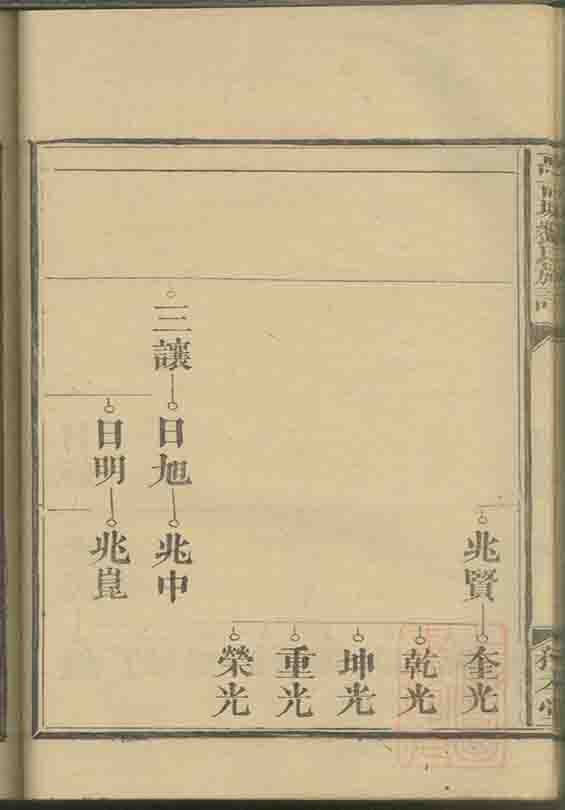 兆賢
奎光
乾光
坤光
重光
榮光
三讓
日旭
兆中
日明
兆崑